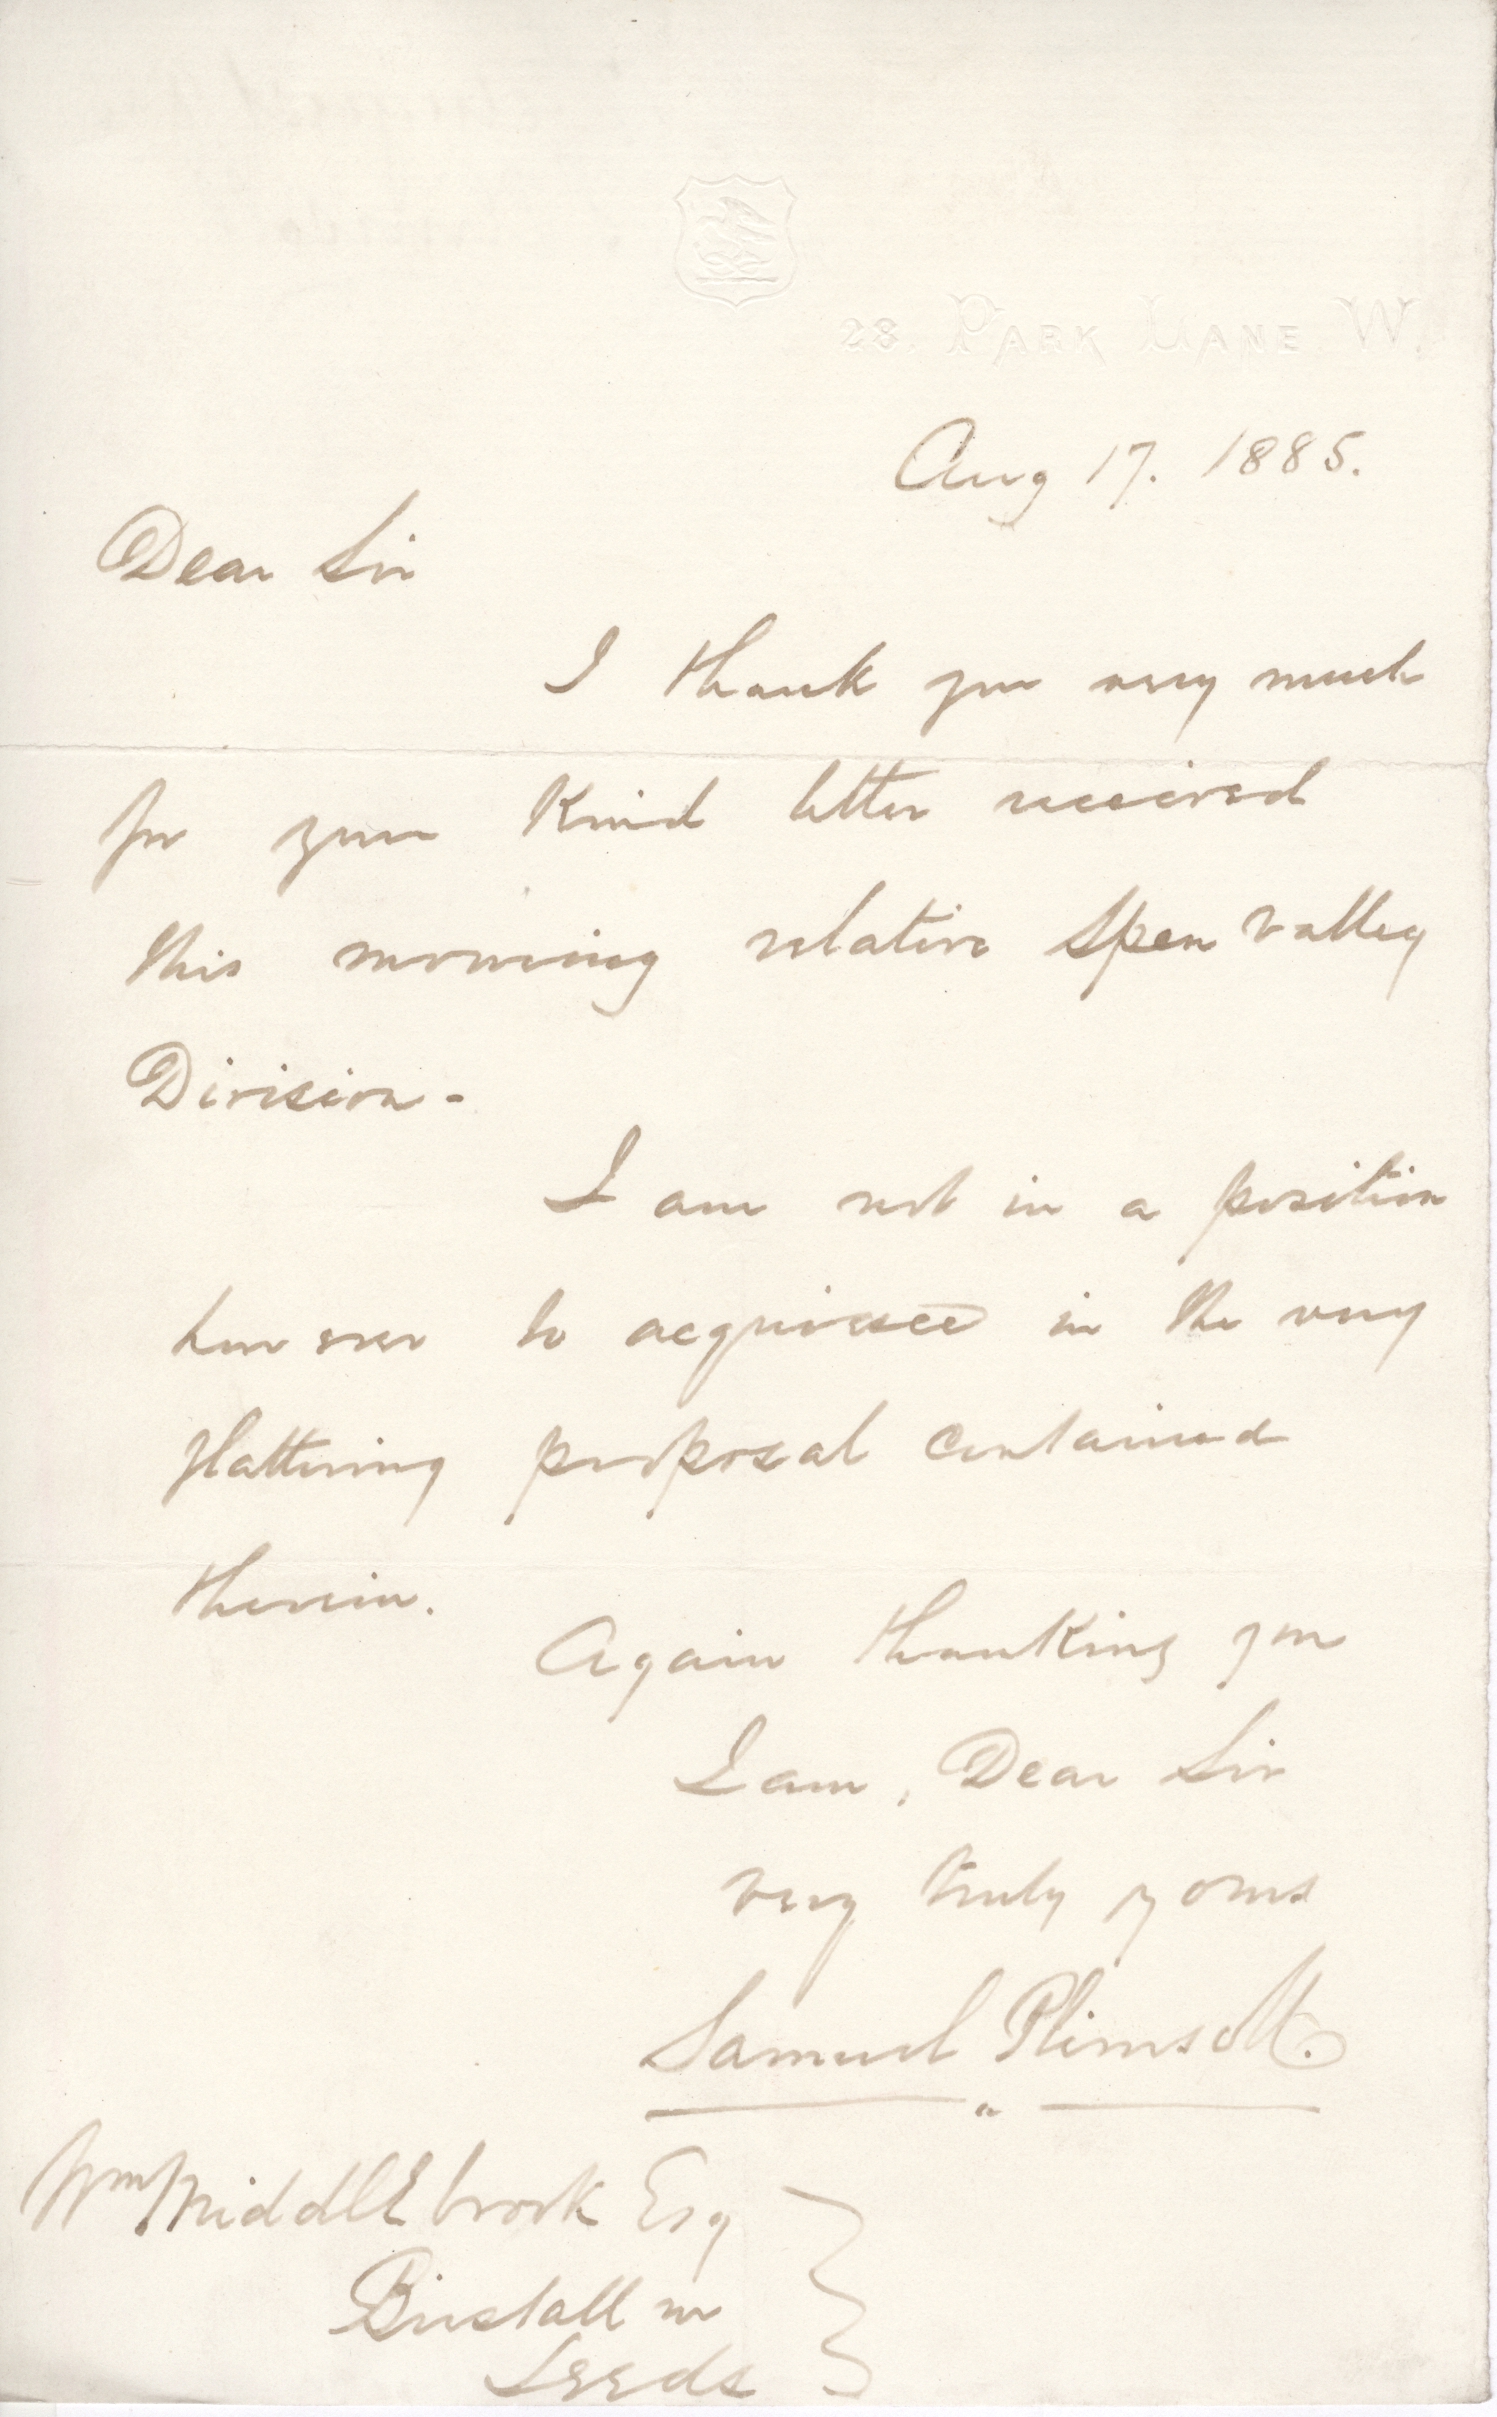 28. PARK LANE. W.
Aug 17. 1885.
Dear Sir
I thank you very much
for your kind letter received
this morning relative Spen Valley
Division -
I am not in a position
however to acquiesce in the very
flattering proposal contained
therein.
Again thanking you
I am, Dear Sir
very truly yours
Samuel Plimsoll.
Wm Middlebrook Esq
Birstall nr
Leeds